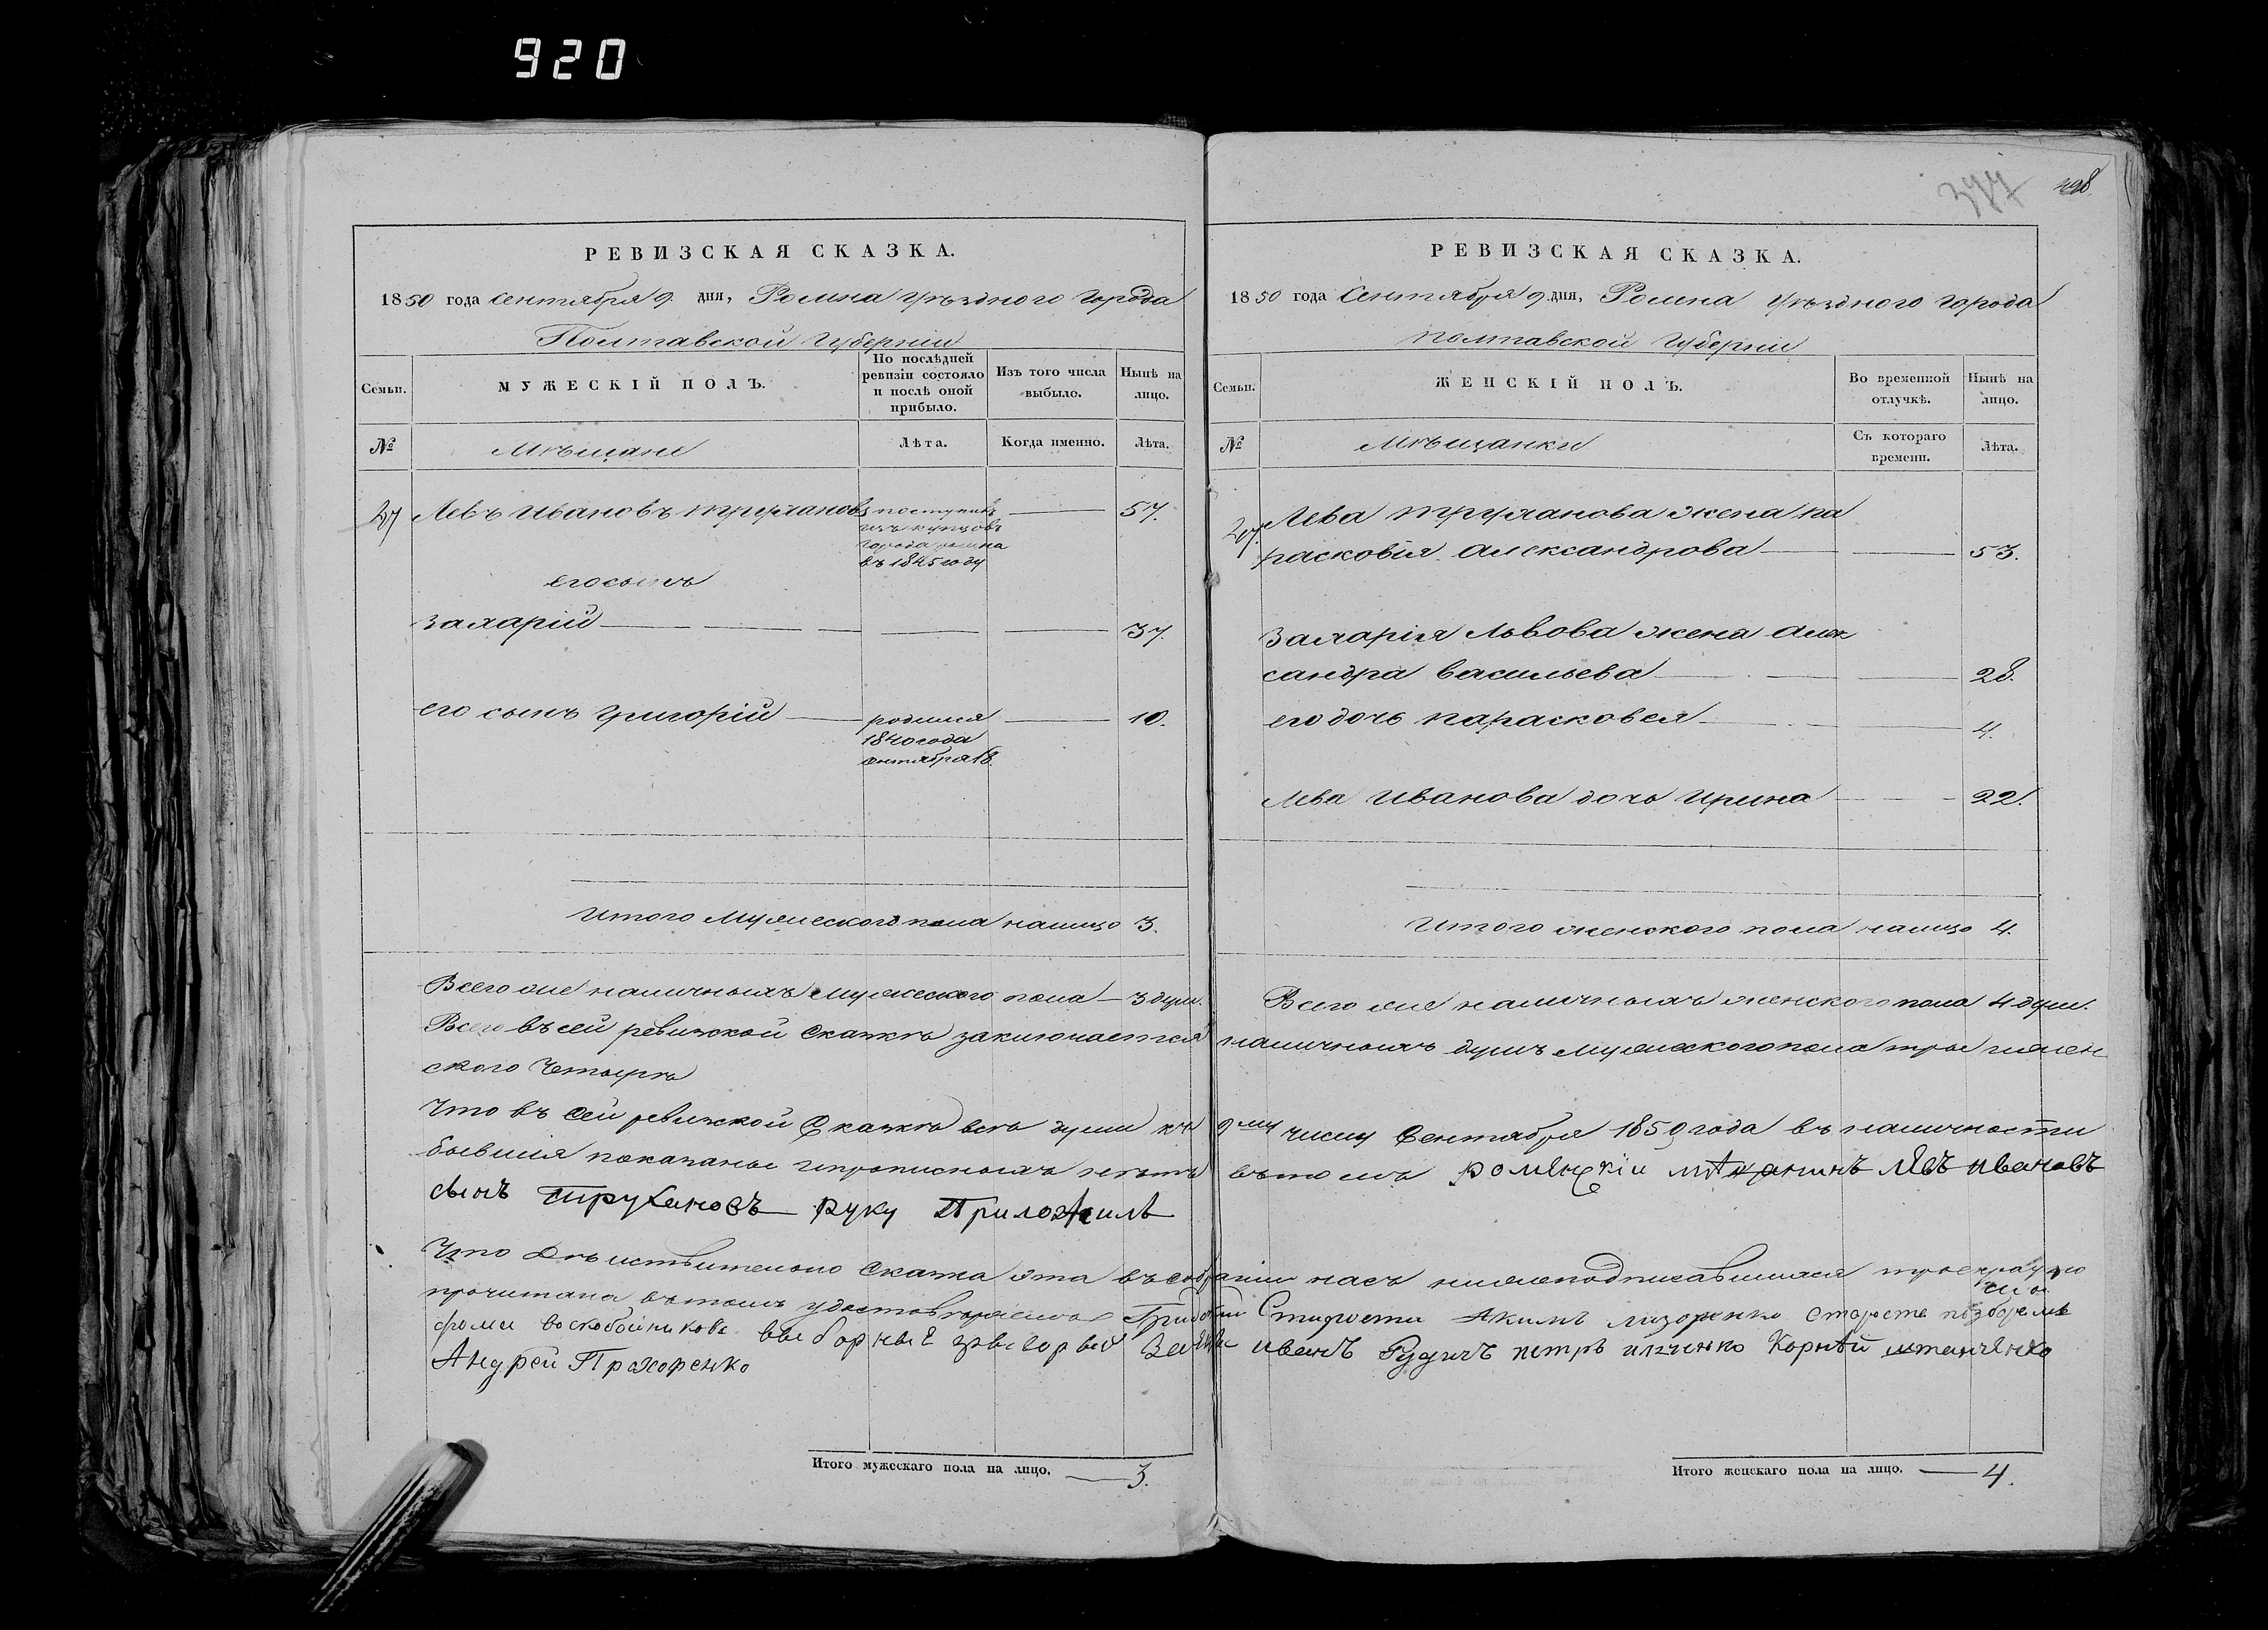 920
377
498
РЕВИЗСКАЯ СКАЗКА.
1850 года Сентября 9 дня, Ромна Уѣзднаго Города
Полтавской Губерніи
Семьи.
МУЖЕСКІЙ ПОЛЪ.
По послѣдней ревизіи состояло и послѣ оной прибыло.
Изъ того числа выбыло.
Нынѣ на лицо.
№
Мѣщане
Лѣта.
Когда именно.
Лѣта.
27 Левъ Ивановъ Трухановъ поступилъ — 57.
изъ купцовъ
города Ромна
въ 1845 году
его сынъ
Захарій — — — 37.
его сынъ Григорій — родился — 10.
1840 года
Сентября 18.
Итого Мужескаго пола налицо 3.
Всего же наличныхъ мужескаго пола — 3 душ.
РЕВИЗСКАЯ СКАЗКА.
1850 года Сентября 9 дня, Ромна Уѣзднаго Города
Полтавской Губерніи
Семьи.
ЖЕНСКІЙ ПОЛЪ.
Во временной отлучкѣ.
Нынѣ на лицо.
№
Мѣщанки
Съ котораго времени.
Лѣта.
27. Лева Труханова жена па
расковія Александрова — — 53.
Захарія Львова жена Алек
сандра Васильева — — 28.
его дочь Парасковея — — 4.
Лева Иванова дочь Ирина — — 22.
Итого женского пола налицо 4.
Всего же наличныхъ женского пола 4 душ.
Всего въ сей ревизской Сказкѣ заключается наличныхъ душъ Мужескаго пола три и жен
ского Четыре
Что въ Сей ревизской Сказкѣ всѣ души къ 9му числу Сентября 1850 года въ наличности
бывшия показаны и прописныхъ нетъ въ томъ роменскіи мѣщанинъ Левъ Ивановъ
сынъ Трухановъ руку Приложилъ
Что Действительно Сказка эта въ собраніи насъ нижеподписавшихся
прочитана въ томъ удостоверяемъ Старости Акимъ лазоренко Староста
фома воскобойникова выборные Иванъ Рудичъ петръ илченко Корнѣй
Андрей Прохоренко
Итого мужескаго пола на лицо. — 3.
Итого женскаго пола на лицо. — 4.